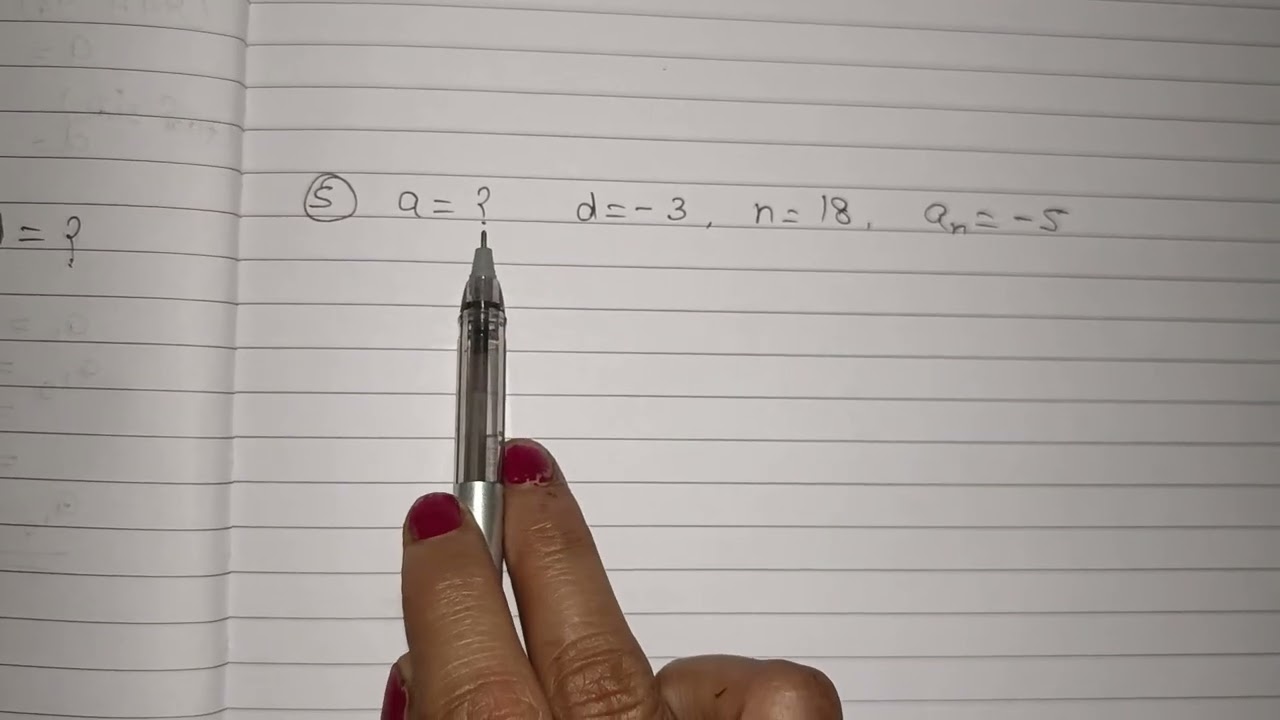 ⑤ a = ? d = -3, n = 18, aₙ = -5
= ?